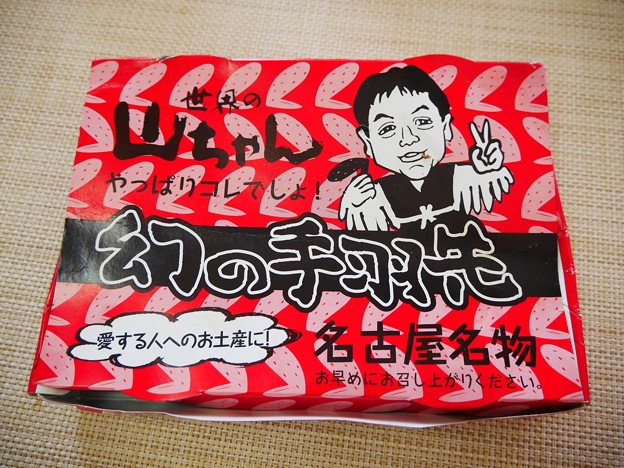 世界の
山ちゃん
やっぱりコレでしょ!
幻の手羽先
愛する人へのお土産に!
名古屋名物
お早めにお召し上がりください。